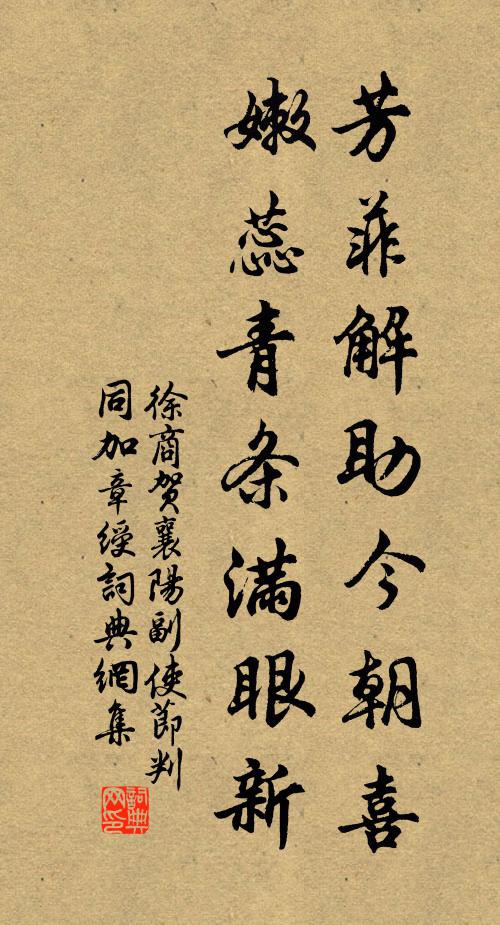 芳菲解助今朝喜
嫩蕊青条满眼新
徐商贺襄陽副使節判
同加章綬詞典網集
詞典網印